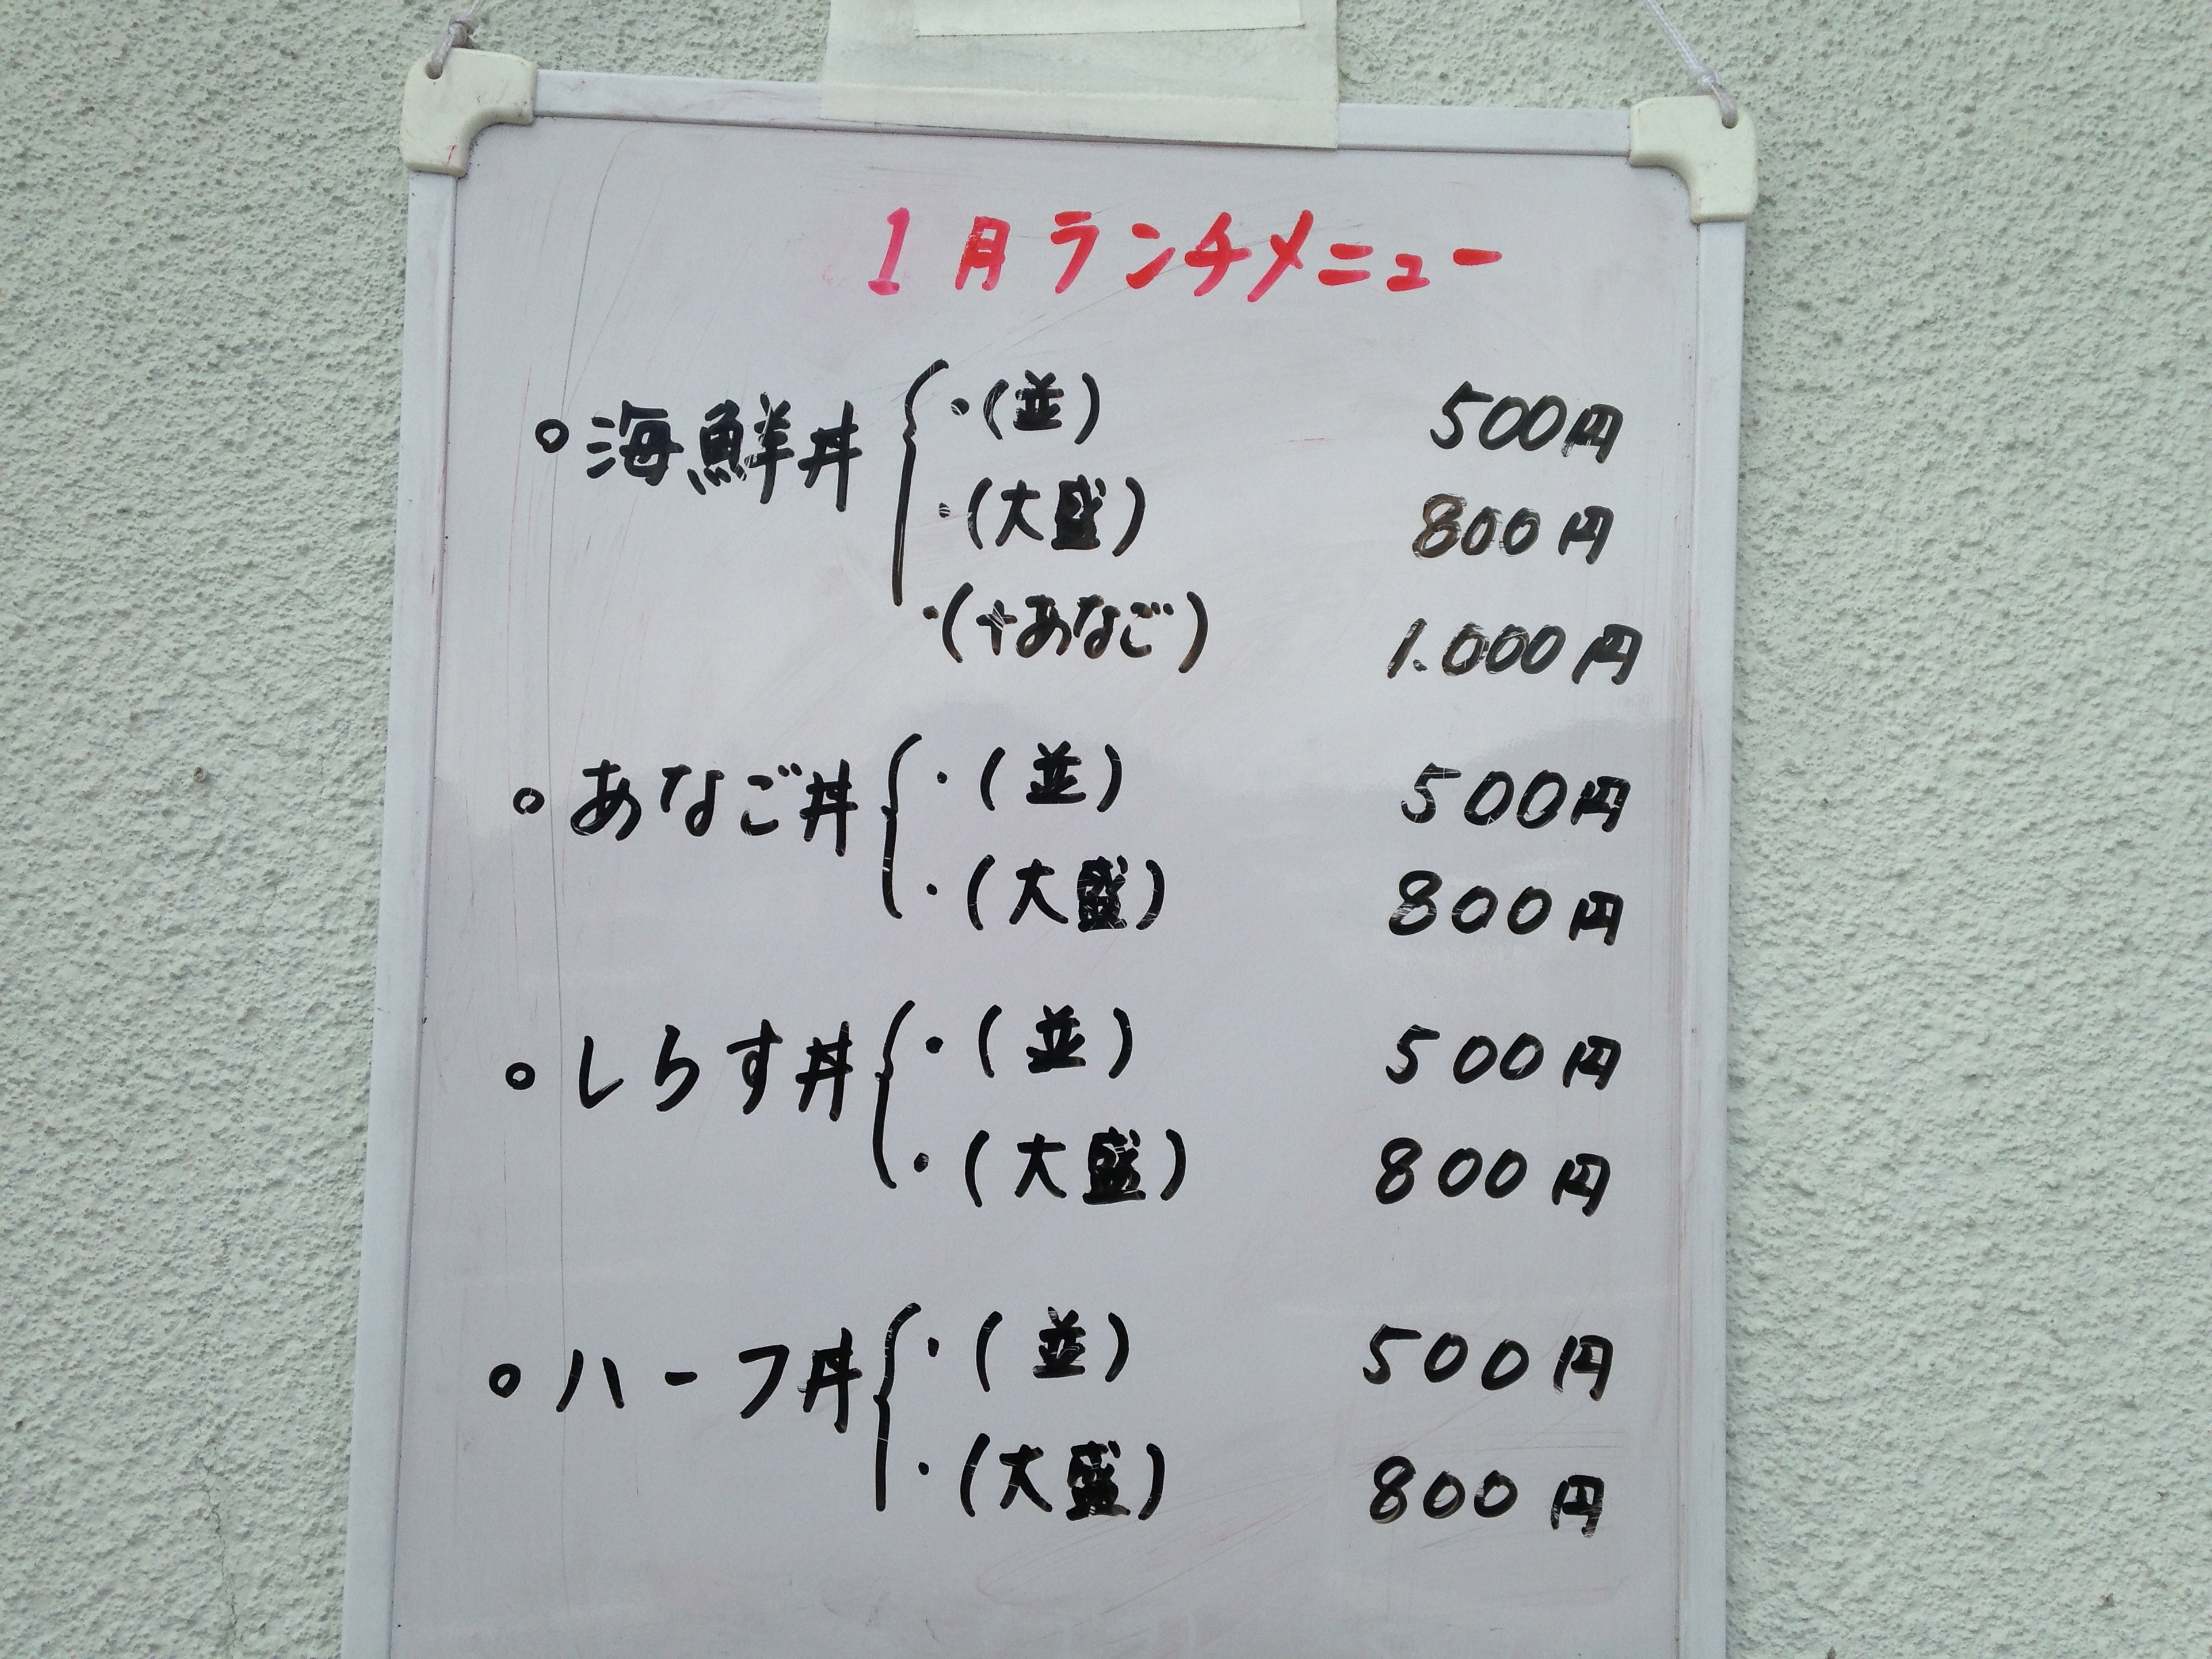 1月ランチメニュー
○海鮮丼 ・(並) 500円
・(大盛) 800円
・(+あなご) 1.000円
○あなご丼 ・(並) 500円
・(大盛) 800円
○しらす丼 ・(並) 500円
・(大盛) 800円
○ハーフ丼 ・(並) 500円
・(大盛) 800円